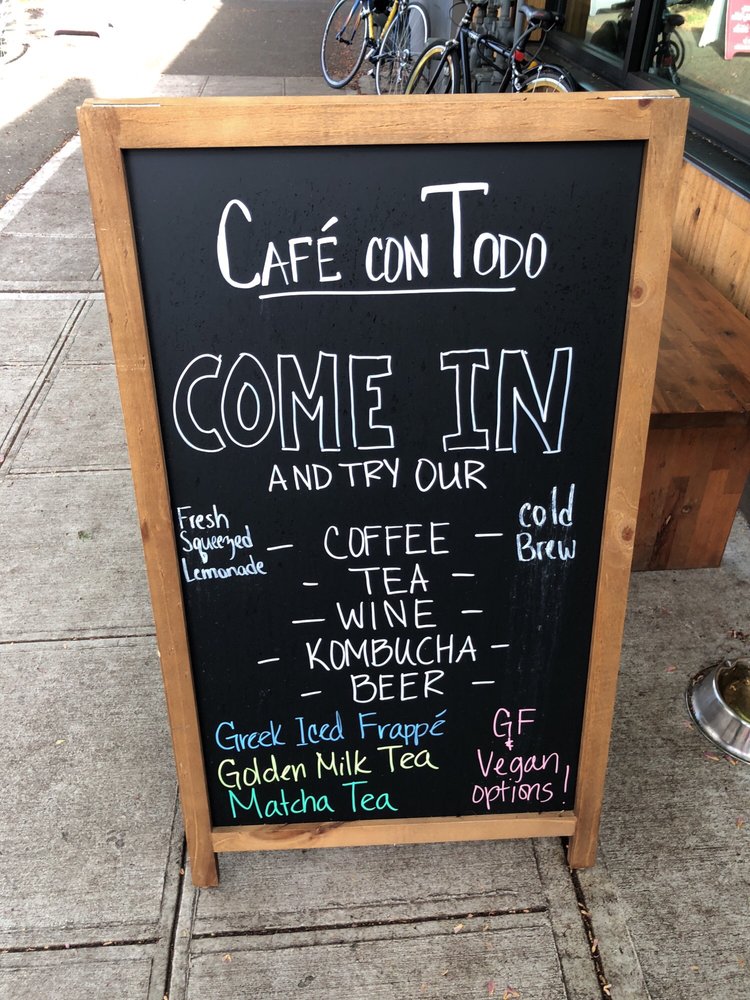 CAFÉ CON TODO
COME IN
AND TRY OUR
Fresh
Squeezed
Lemonade
cold
Brew
— COFFEE —
- TEA —
— WINE —
— KOMBUCHA -
- BEER —
Greek Iced Frappé
Golden Milk Tea
Matcha Tea
GF
&
Vegan
options!